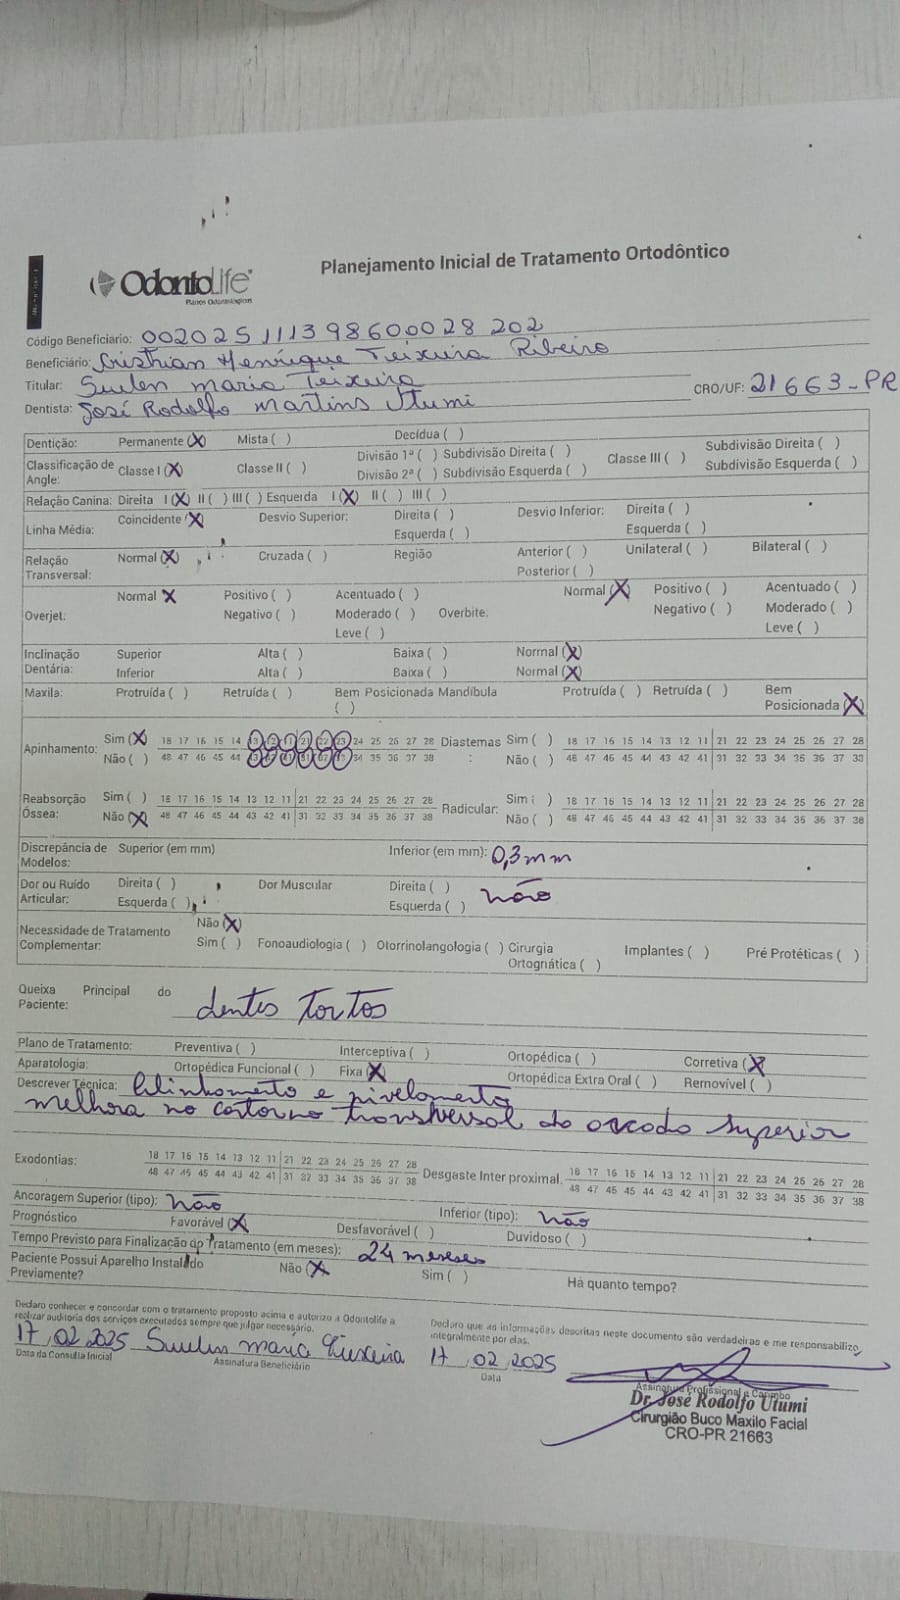 OdontoLife
Planos Odontológicos
Planejamento Inicial de Tratamento Ortodôntico
Código Beneficiário: 002025111398600028 202
Beneficiário: Cristhian Henrique Teixeira Ribeiro
Titular: Suelen maria Teixeira
Dentista: José Rodolfo Martins Utumi CRO/UF: 21663-PR
Dentição: Permanente (X) Mista ( ) Decídua ( )
Classificação de Angle: Classe I (X) Classe II ( ) Divisão 1ª ( ) Subdivisão Direita ( ) Classe III ( ) Subdivisão Direita ( )
Divisão 2ª ( ) Subdivisão Esquerda ( ) Subdivisão Esquerda ( )
Relação Canina: Direita I (X) II ( ) III ( ) Esquerda I (X) II ( ) III ( )
Linha Média: Coincidente (X) Desvio Superior: Direita ( ) Desvio Inferior: Direita ( )
Esquerda ( ) Esquerda ( )
Relação Transversal: Normal (X) Cruzada ( ) Região Anterior ( ) Unilateral ( ) Bilateral ( )
Posterior ( )
Overjet: Normal X Positivo ( ) Acentuado ( ) Overbite: Normal (X) Positivo ( ) Acentuado ( )
Negativo ( ) Moderado ( ) Negativo ( ) Moderado ( )
Leve ( ) Leve ( )
Inclinação Dentária: Superior Alta ( ) Baixa ( ) Normal (X)
Inferior Alta ( ) Baixa ( ) Normal (X)
Maxila: Protruída ( ) Retruída ( ) Bem Posicionada ( ) Mandíbula Protruída ( ) Retruída ( ) Bem Posicionada (X)
Apinhamento: Sim (X) 18 17 16 15 14 13 12 11 21 22 23 24 25 26 27 28 Diastemas: Sim ( ) 18 17 16 15 14 13 12 11 21 22 23 24 25 26 27 28
Não ( ) 48 47 46 45 44 43 42 41 31 32 33 34 35 36 37 38 Não ( ) 48 47 46 45 44 43 42 41 31 32 33 34 35 36 37 38
Reabsorção Óssea: Sim ( ) 18 17 16 15 14 13 12 11 21 22 23 24 25 26 27 28 Radicular: Sim ( ) 18 17 16 15 14 13 12 11 21 22 23 24 25 26 27 28
Não (X) 48 47 46 45 44 43 42 41 31 32 33 34 35 36 37 38 Não ( ) 48 47 46 45 44 43 42 41 31 32 33 34 35 36 37 38
Discrepância de Modelos: Superior (em mm) Inferior (em mm): 0,3mm
Dor ou Ruído Articular: Direita ( ) Dor Muscular Direita ( ) não
Esquerda ( ) Esquerda ( )
Necessidade de Tratamento Complementar: Não (X)
Sim ( ) Fonoaudiologia ( ) Otorrinolangologia ( ) Cirurgia Ortognática ( ) Implantes ( ) Pré Protéticas ( )
Queixa Principal do Paciente: dentes tortos
Plano de Tratamento: Preventiva ( ) Interceptiva ( ) Ortopédica ( ) Corretiva (X)
Aparatologia: Ortopédica Funcional ( ) Fixa (X) Ortopédica Extra Oral ( ) Removível ( )
Descrever Técnica: Alinhamento e nivelamento
melhora no contorno transversal do arcada superior
Exodontias: 18 17 16 15 14 13 12 11 21 22 23 24 25 26 27 28 Desgaste Inter proximal. 18 17 16 15 14 13 12 11 21 22 23 24 25 26 27 28
48 47 46 45 44 43 42 41 31 32 33 34 35 36 37 38 48 47 46 45 44 43 42 41 31 32 33 34 35 36 37 38
Ancoragem Superior (tipo): não Inferior (tipo): não
Prognóstico Favorável (X) Desfavorável ( ) Duvidoso ( )
Tempo Previsto para Finalização do Tratamento (em meses): 24 meses
Paciente Possui Aparelho Instalado Previamente? Não (X) Sim ( ) Há quanto tempo?
Declaro conhecer e concordar com o tratamento proposto acima e autorizo a Odontolife a
realizar auditoria dos serviços executados sempre que julgar necessário.
Declaro que as informações descritas neste documento são verdadeiras e me responsabilizo
integralmente por elas.
17, 02 2025 Suelen maria Teixeira 17, 02, 2025
Data da Consulta Inicial Assinatura Beneficiário Data Assinatura Profissional e Carimbo
Dr. José Rodolfo Utumi
Cirurgião Buco Maxilo Facial
CRO-PR 21663